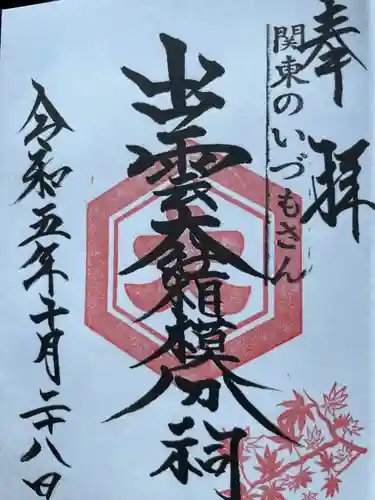 奉拝
関東のいづもさん
出雲大社相模分祠
令和五年十月二十八日